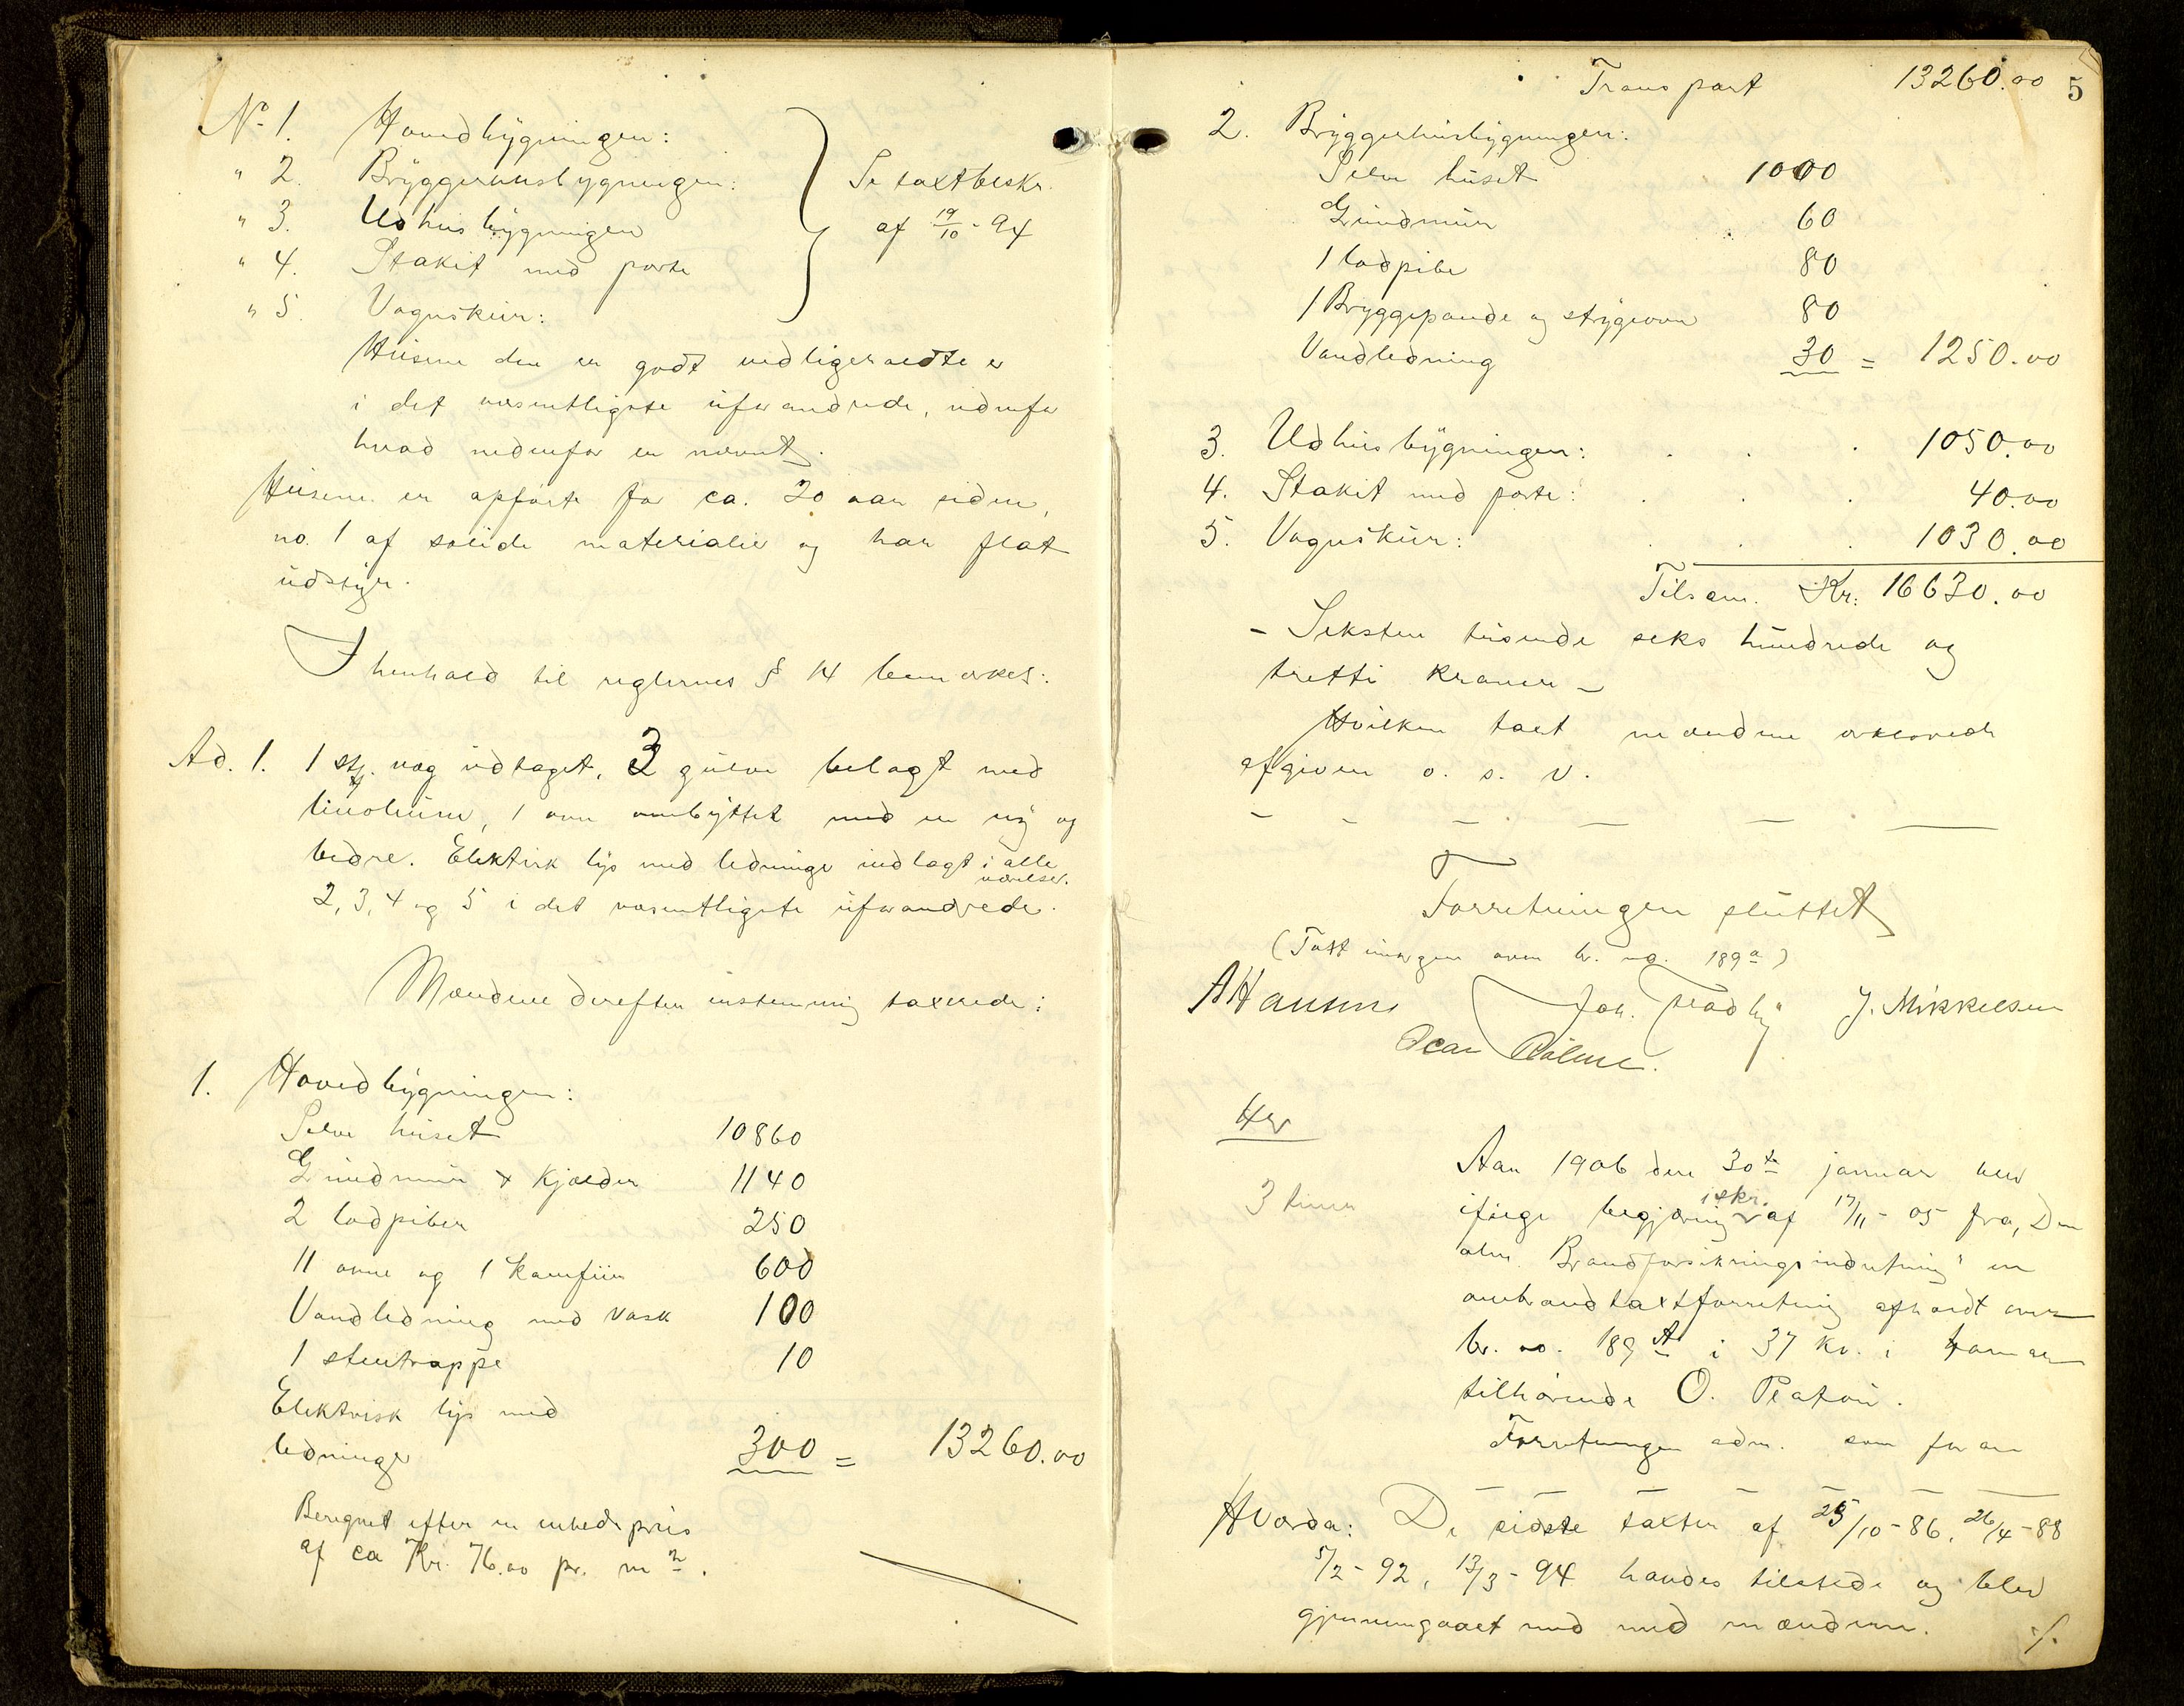 No 1. Hovedbygningen:
" 2. Bryggerhusbygningen:
" 3. Udhusbygningen
" 4. Stakit med porte
" 5. Vognskur:
Se taxtbeskr.
af 19/10 - 94
Husene der er godt vedligeholdte er
i det væsentligste uforandrede, udenfor
hvad nedenfor er nævnt.
Husene er opførte for ca. 20 aar siden,
no. 1 af solide materialier og har flot
udstyr.
I henhold til reglernes § 14 bemærkes:
Ad. 1. 1 stk. væg udtaget, 3 gulve belagt med
linoleum, 1 ovn ombyttet med en ny og
bedre. Elektrisk lys med ledninger indlagt i alle
værelser.
2, 3, 4 og 5 i det væsentligste uforandrede.
Mændene derefter enstemmig taxerede:
1. Hovedbygningen:
Selve huset 10860
Grundmur & Kjælder 1140
2 lodpiber 250
11 ovne og 1 komfur 600
Vandledning med vask 100
1 stentrappe 10
Elektrisk lys med
ledninger 300 = 13260.00
Beregnet efter en enhedspris
af ca Kr. 76.00 pr. m2.
5
Transport 13260.00
2. Bryggerhusbygningen:
Selve huset 1000
Grundmur 60
1 lodpibe 80
1 Bryggepande og strygeovn 80
Vandledning 30 = 1250.00
3. Udhusbygningen: . . . 1050.00
4. Stakit med porte: . . . 40.00
5. Vognskur: . . . 1030.00
Tilsam. Kr: 16630.00
- Seksten tusende seks hundrede og
tretti kroner -
Hvilken taxt mændene erklærede
afgiven o. s. v.
- - - - - -
Forretningen sluttet
(Taxt over br. no. 189a)
AHansen Joh. J. Mikkelsen
Oscar
3 timer
Aar 1906 den 30te januar blev
ifølge begjæring i skr. af 17/11 - 05 fra "Den
alm. Brandforsikringsindretning" en
ombrandtaxtforretning afholdt over
br. no. 189A i 37 kv. i
tilhørende O. Platou.
Forretningen adm. som foran
- - - - - -
Hvorda: De sidste taxter af 25/10 - 86, 26/4 - 88
5/2 - 92, 13/3 - 94 havdes tilstede og blev
gjennemgaaet med mændene.
./.